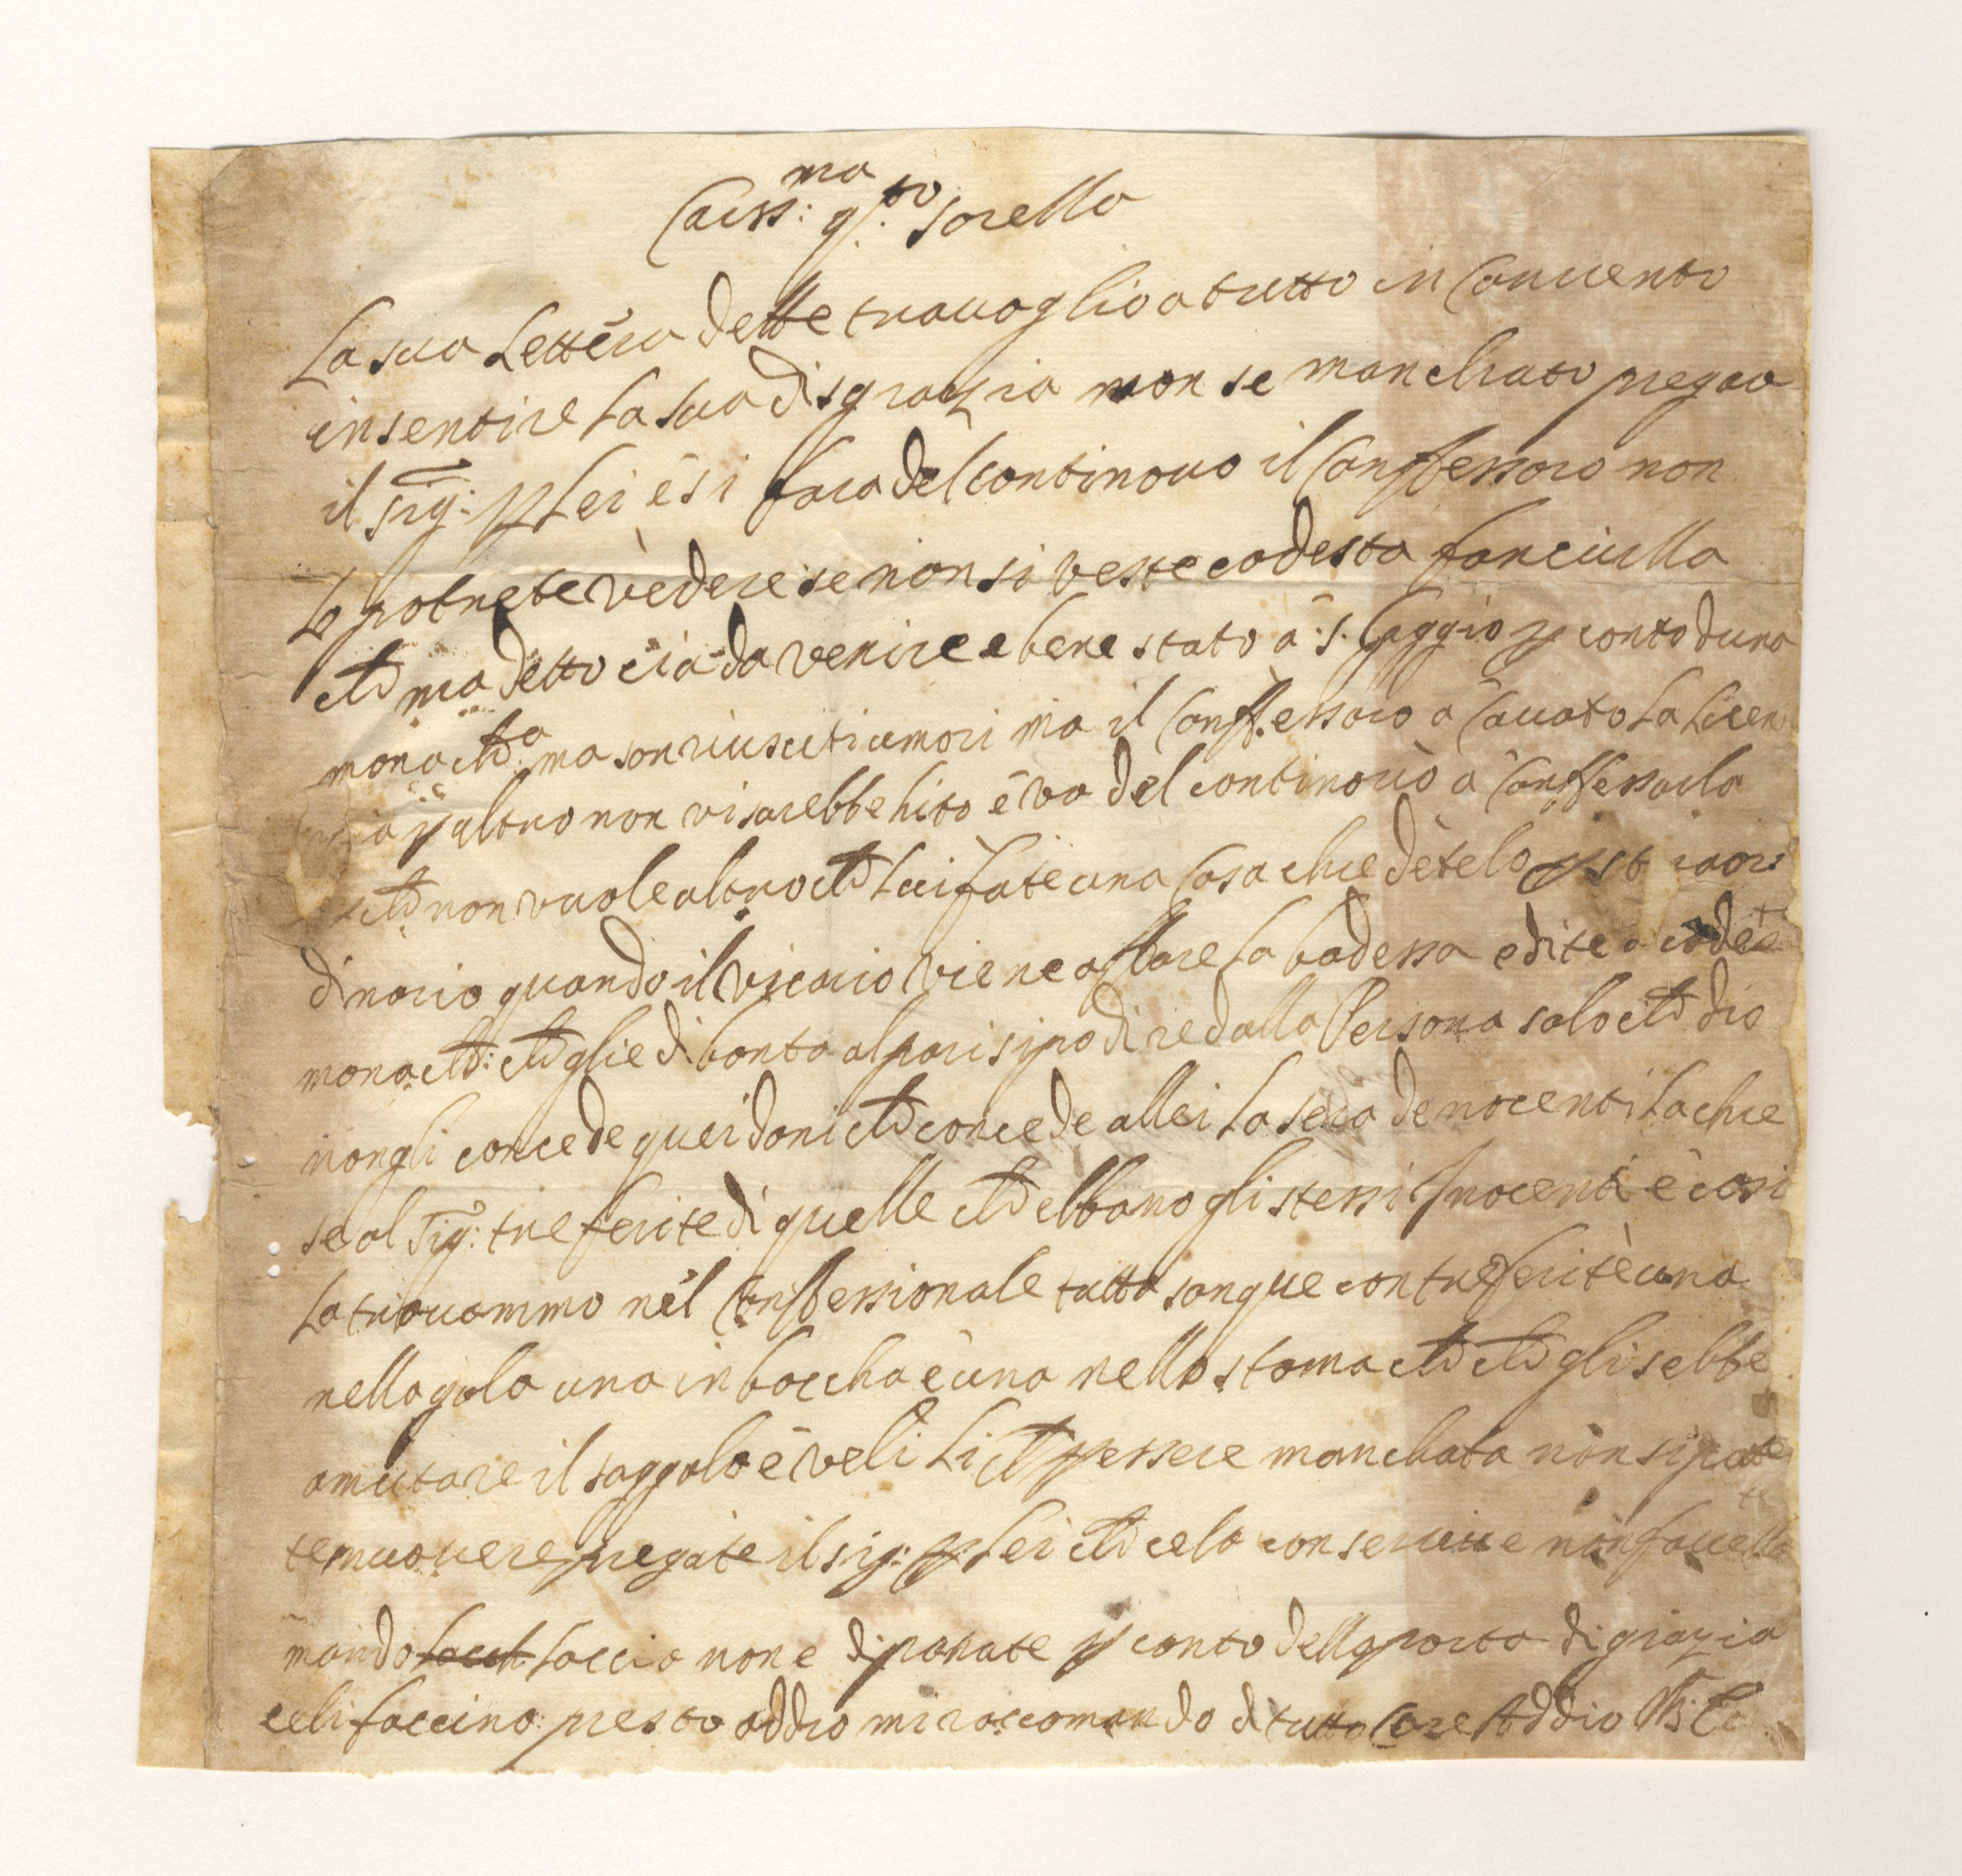 Cariss:ma q.to sorella
La sua Lettera dette travaglio a tutto in Convento
in sentire La sua disgrazia non se manchato pregar
il Sig: p Lei è si fara del continovo il Confessoro non
Lo potrete vedere se non si veste codesta fanciulla
che ma detto cià da venire e bene stato à S. Gaggio p conto duna
monacha ma son riusciti umori ma il Confessaro a Cavato La Licen
zia p altro non visarebbe hito è va del continovo à Confessarla
che non vuole altro che Lui fate una Cosa chiedetelo p st raor
dinario quando il vicario viene a ffare La badessa e dite a codest
monache: che glie di bonta al pari si po dire dalla Persona salo che dio
non gli concede quei doni che concede allei La sera denocenti La chie
se al Sig: tre ferite di quelle che ebbano gli stessi Inocenti è cosi
La trovammo nel Confessionale tutta sangue con tre ferite una
nella gola una in boccha è una nello stomacho che gli sebbe
a mutare il soggolo è veli Li che p essere manchata non si pote
te muovere pregate il sig: p Lei che cela conservi e non favella
mando Laccia non e di panate p conto della porta di grazia
celi faccino presto addio mi raccomando di tutto Core Addio